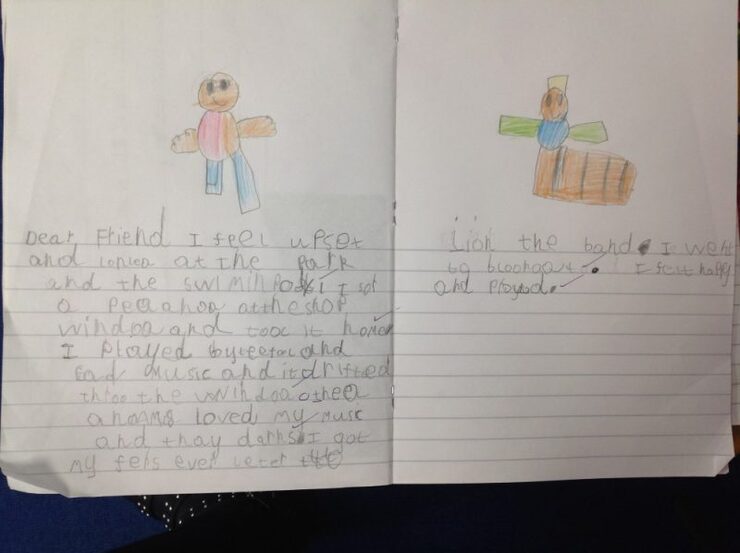 Dear Friend I feel upset
and lonlea at the park
and the swimin Pool I sor
a peeahoa at the shop
windoa and tooc it home
I Played byeetac and
Sad Music and it drifted
throo the windoa othea
anamas loved my music
and thay darns I got
My fers ever leter
I join the band I went
to I felt happy
and Playod.